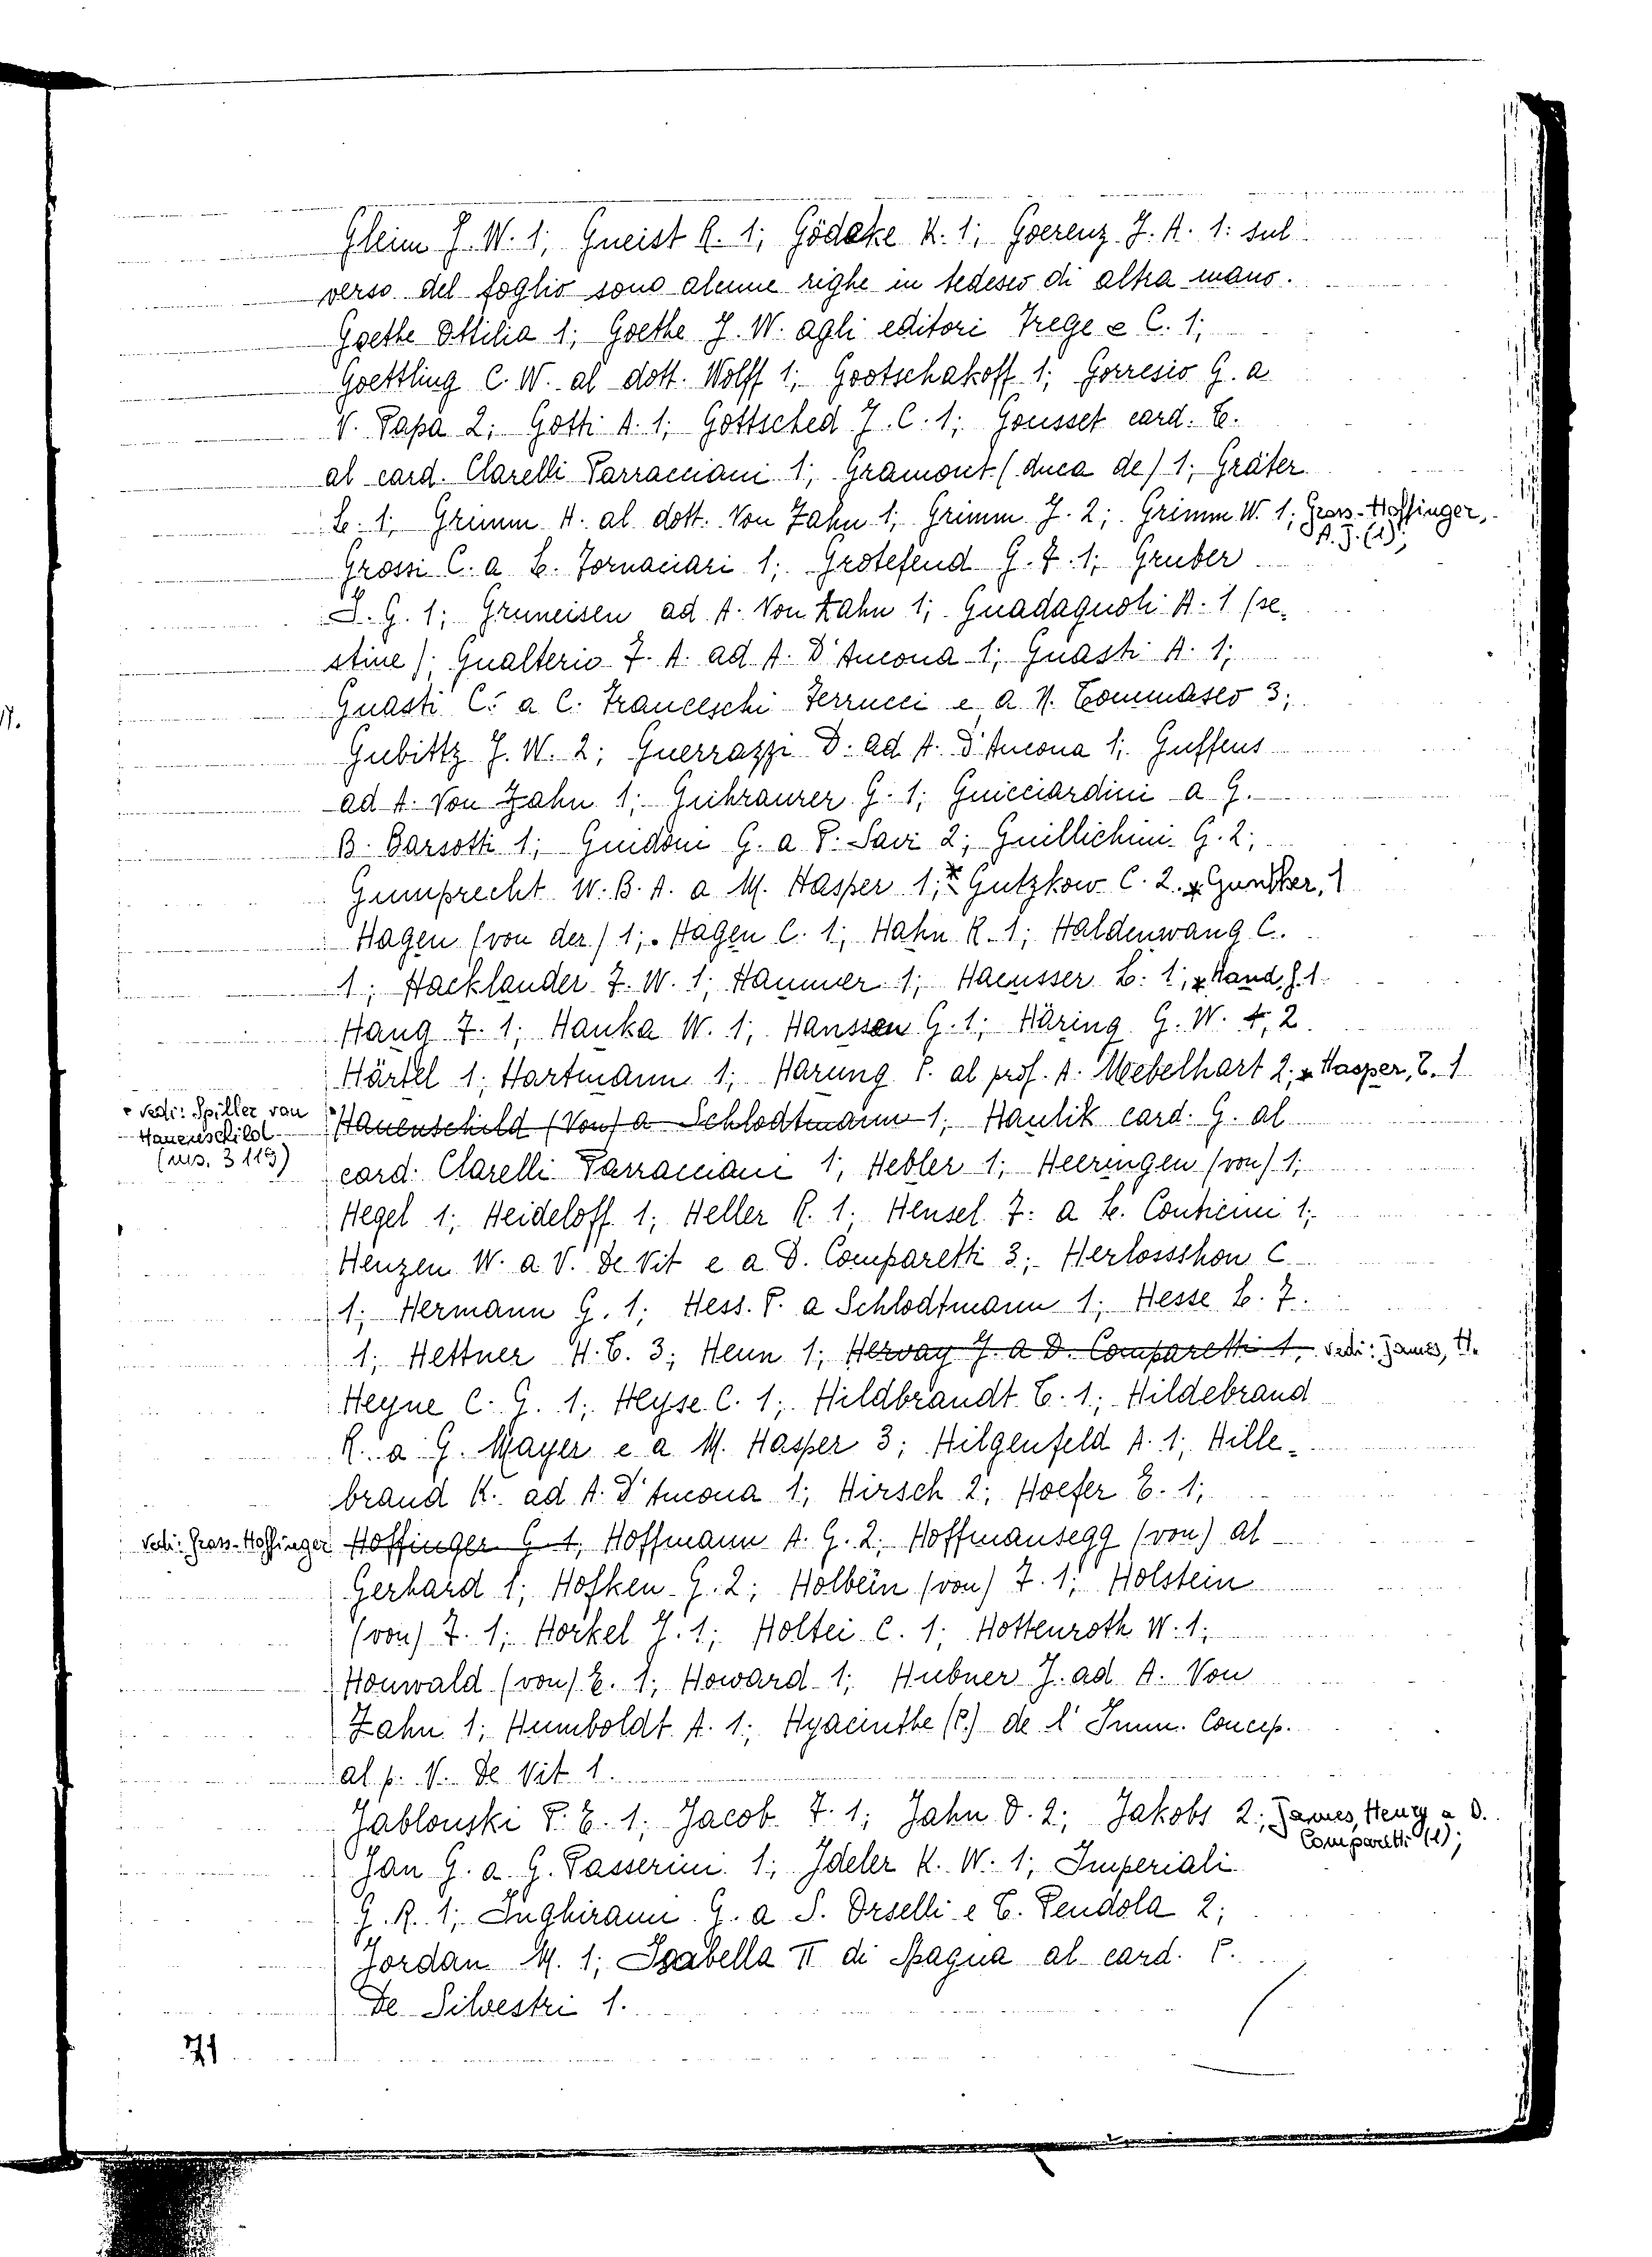 Gleim J. W. 1; Gneist R. 1; Gödeke K. 1; Goerenz J. A. 1: sul
verso del foglio sono alcune righe in tedesco di altra mano.
Goethe Ottilia 1; Goethe J. W. agli editori Frege e C. 1;
Goettling C. W. al dott. Wolff 1; Gootschakoff 1; Gorresio G. a
V. Papa 2; Gotti A. 1; Gottsched J. C. 1; Gousset card. T.
al card. Clarelli Parracciani 1; Gramont (duca de) 1; Gräter
L. 1; Grimm H. al dott. Von Zahn 1; Grimm J. 2; Grimm W. 1; Gross-Hoffinger,
A. J. (1);
Grossi C. a L. Fornaciari 1; Grotefend G. F. 1; Gruber
J. G. 1; Gruneisen ad A. Von Zahn 1; Guadagnoli A. 1 (se-
stine); Gualterio F. A. ad A. D'Ancona 1; Guasti A. 1;
17.
Guasti C. a C. Franceschi Ferrucci e a N. Tommaseo 3;
Gubittz J. W. 2; Guerrazzi D. ad A. D'Ancona 1; Guffens
ad A. Von Zahn 1; Guhraurer G. 1; Guicciardini a G.
B. Barsotti 1; Guidoni G. a P. Savi 2; Guillichini G. 2;
Gumprecht W. B. A. a M. Hasper 1;* Gutzkow C. 2. * Gunther, 1
Hagen (von der) 1; Hagen C. 1; Hahn R. 1; Haldenwang C.
1; Hacklander F. W. 1; Hammer 1; Haeusser L. 1; * Hand, J. 1
Hang F. 1; Hanka W. 1; Hanssen G. 1; Häring G. W. 1, 2.
Härtel 1; Hartmann 1; Harung P. al prof. A. Mebelhart 2; * Hasper, E. 1
• Vedi: Spiller von
Hauenschild
(ms. 3 119)
• Hauenschild (Von) a Schlodtmann 1; Haulik card. G. al
card. Clarelli Parracciani 1; Hebler 1; Heeringen (von) 1;
Hegel 1; Heideloff 1; Heller R. 1; Hensel F. a L. Conticini 1;
Henzen W. a V. De Vit e a D. Comparetti 3; Herlossshon C
1; Hermann G. 1; Hess. P. a Schlodtmann 1; Hesse L. F.
1; Hettner H. T. 3; Heun 1; Hervay J. a D. Comparetti 1, vedi: James, H.
Heyne C. G. 1; Heyse C. 1; Hildbrandt T. 1; Hildebrand
R. a G. Mayer e a M. Hasper 3; Hilgenfeld A. 1; Hille-
brand K. ad A. D'Ancona 1; Hirsch 2; Hoefer E. 1;
Vedi: Gross-Hoffinger Hoffinger G 1, Hoffmann A. G. 2; Hoffmansegg (von) al
Gerhard 1; Hofken G. 2; Holbein (von) F. 1; Holstein
(von) F. 1; Horkel J. 1; Holtei C. 1; Hottenroth W. 1;
Houwald (von) E. 1; Howard 1; Hubner J. ad A. Von
Zahn 1; Humboldt A. 1; Hyacinthe (P.) de l'Imm. Concep.
al p. V. De Vit 1.
Jablonski P. E. 1; Jacob F. 1; Jahn O. 2; Jakobs 2; James, Henry a D.
Comparetti (1);
Jan G. a G. Passerini 1; Jdeler K. W. 1; Imperiali
G. R. 1; Inghirami G. a S. Orselli e T. Pendola 2;
Jordan M. 1; Isabella II di Spagna al card. P.
De Silvestri 1.
71